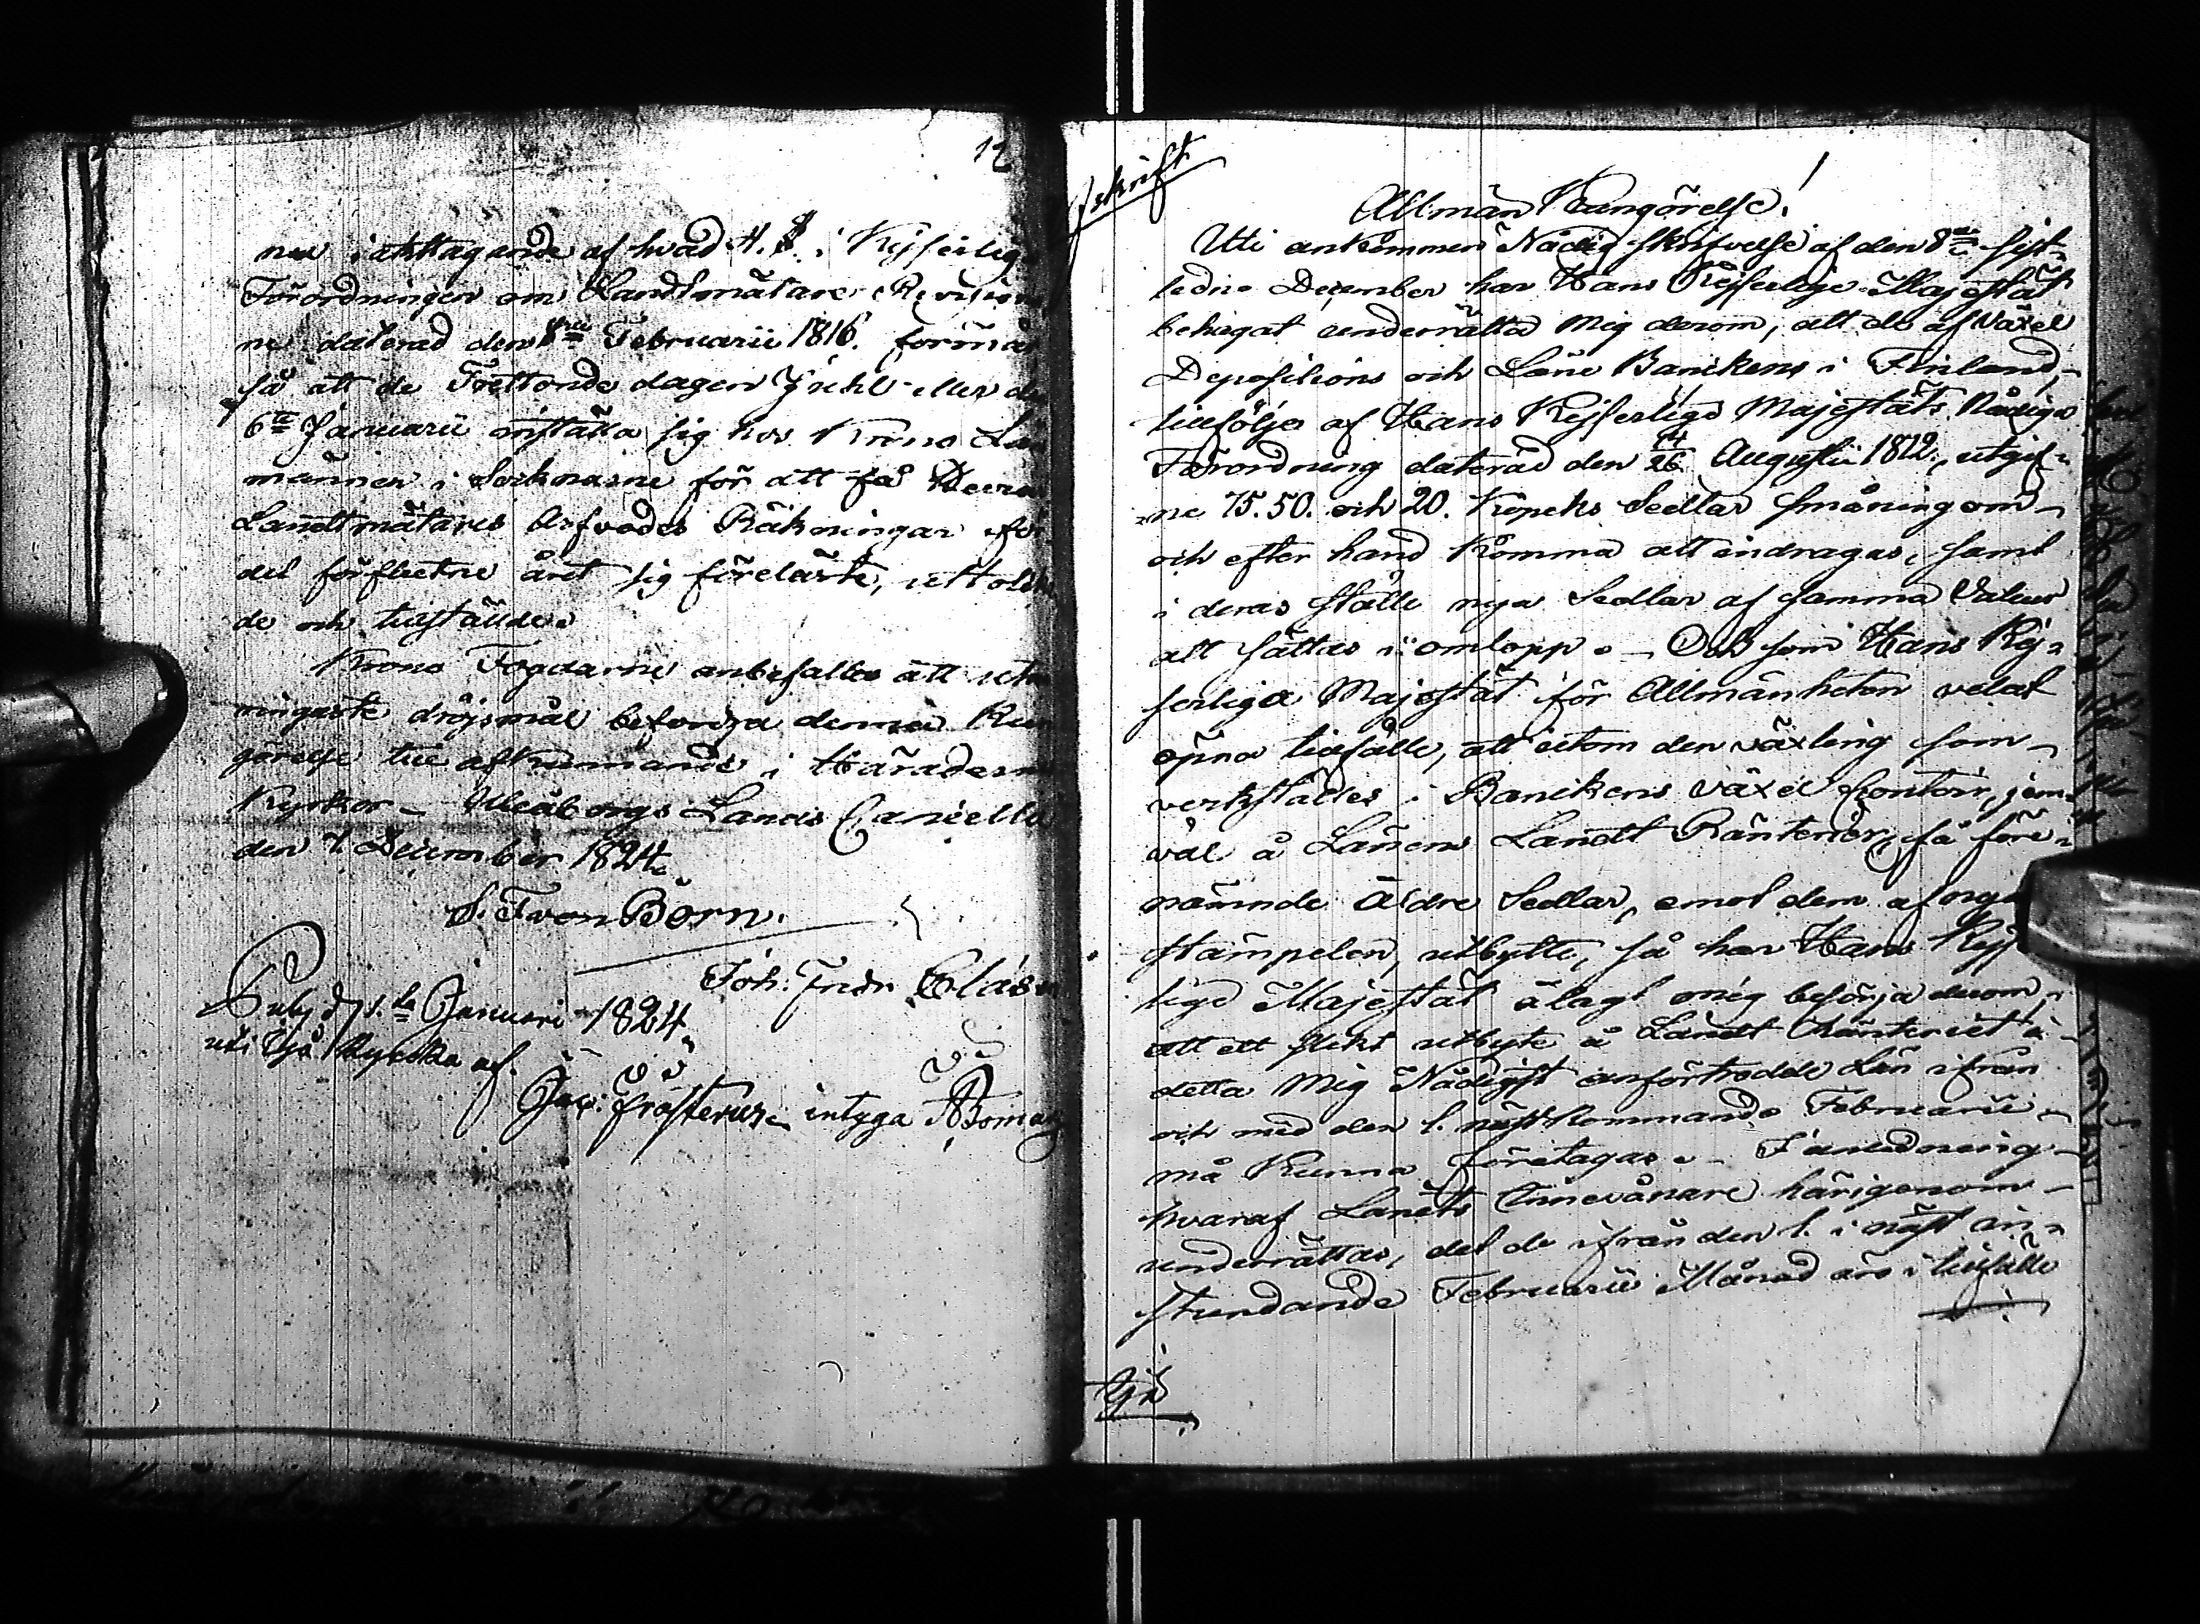 12
ne iakttagande af hvad 4. §. i Kejserlig
Förordningen om Landtmätare Revision
ne daterad den Februarii 1816. förmår
så att de Trettonde dagen Juhl eller de
6te Januarii inställa sig hos Krono Län
männen i Soknarne för att få
Landtmätares Arfvodes Räkningar för
det förflutne året sig föreläste, uttolk
de och tillställde.
Krono Fogdarne anbefalles att utan
ringaste dröjsmål befordra denna Kun
görelse till afkunnande i Häradern
Kyrkor - Uleåborgs Lands Cancellie
den 7 December 1824.
S. F. von Born.
Joh. Fredr.
Publ. d. 1. Januari 1824
uti Ijå Kyrcka af.
Jac. Frosterus. intyga
Afskrift.
Allmän Kungörelse!
Uti ankommen Nådig skrifvelse af den 8de sist-
ledne December har Hans Kejserlige Majestät
behagat underrätta Mig derom, att de af Växel
Depositions och Låne Banckens i Finland,
tillfölje af Hans Kejserlige Majestäts Nådiga
Förordning daterad den 14/26 Augustii 1812., utgif-
ne 75. 50. och 20. Kopeks Sedlar småningom
och efter hand Komma att indragas, samt
i deras ställe nya Sedlar af samma Valeur
att sättas i omlopp. - Och som Hans Kej-
serliga Majestät för Allmänheten velat
öpna tillfälle, att utom den växling som
verkställes i Banckens Växel Contoir, jem-
väl å Länens Landt Ränterier, få före-
nämnde äldre Sedlar, emot dem af nya
stämpelen, utbytte, så har Hans Kejs
lige Majestät ålagt mig besörja derom
att ett slikt utbyte å Landt Ränteriet i
detta Mig Nådigst anförtrodde Län ifrån
och med den 1. nästkommande Februarii
må Kunna företagas. - I anledning
hvaraf Länets Innevånare härigenom
underrättas, det de ifrån den 1. i näst in-
stundande Februarii Månad äro i tillfälle
Ijå